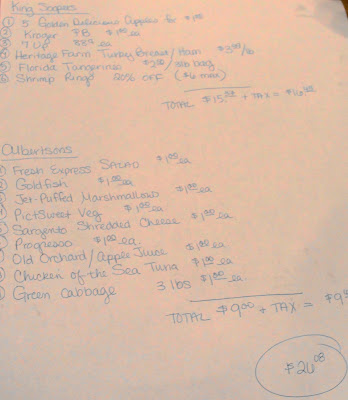 King Soopers
① 5 Golden Delicious Apples for $1.00
② Kroger PB $1.00 ea
③ 7 UP .88¢ ea
④ Heritage Farm Turkey Breast/Ham $3.99/lb
⑤ Florida Tangerines $2.00/3lb bag
⑥ Shrimp Rings 20% OFF ($6 max)
TOTAL $15. + TAX = $16.
Albertsons
Fresh Express SALAD $1.00 ea
Goldfish $1.00 ea
Jet-Puffed Marshmallows $1.00 ea
PictSweet Veg $1.00 ea
Sargendo Shredded Cheese $1.00 ea
Progresso $1.00 ea.
Old Orchard/Apple Juice $1.00 ea
Chicken of the Sea Tuna $1.00 ea
Green Cabbage 3 lbs $1.00 ea.
TOTAL $9.00 + TAX = $9
$26.08